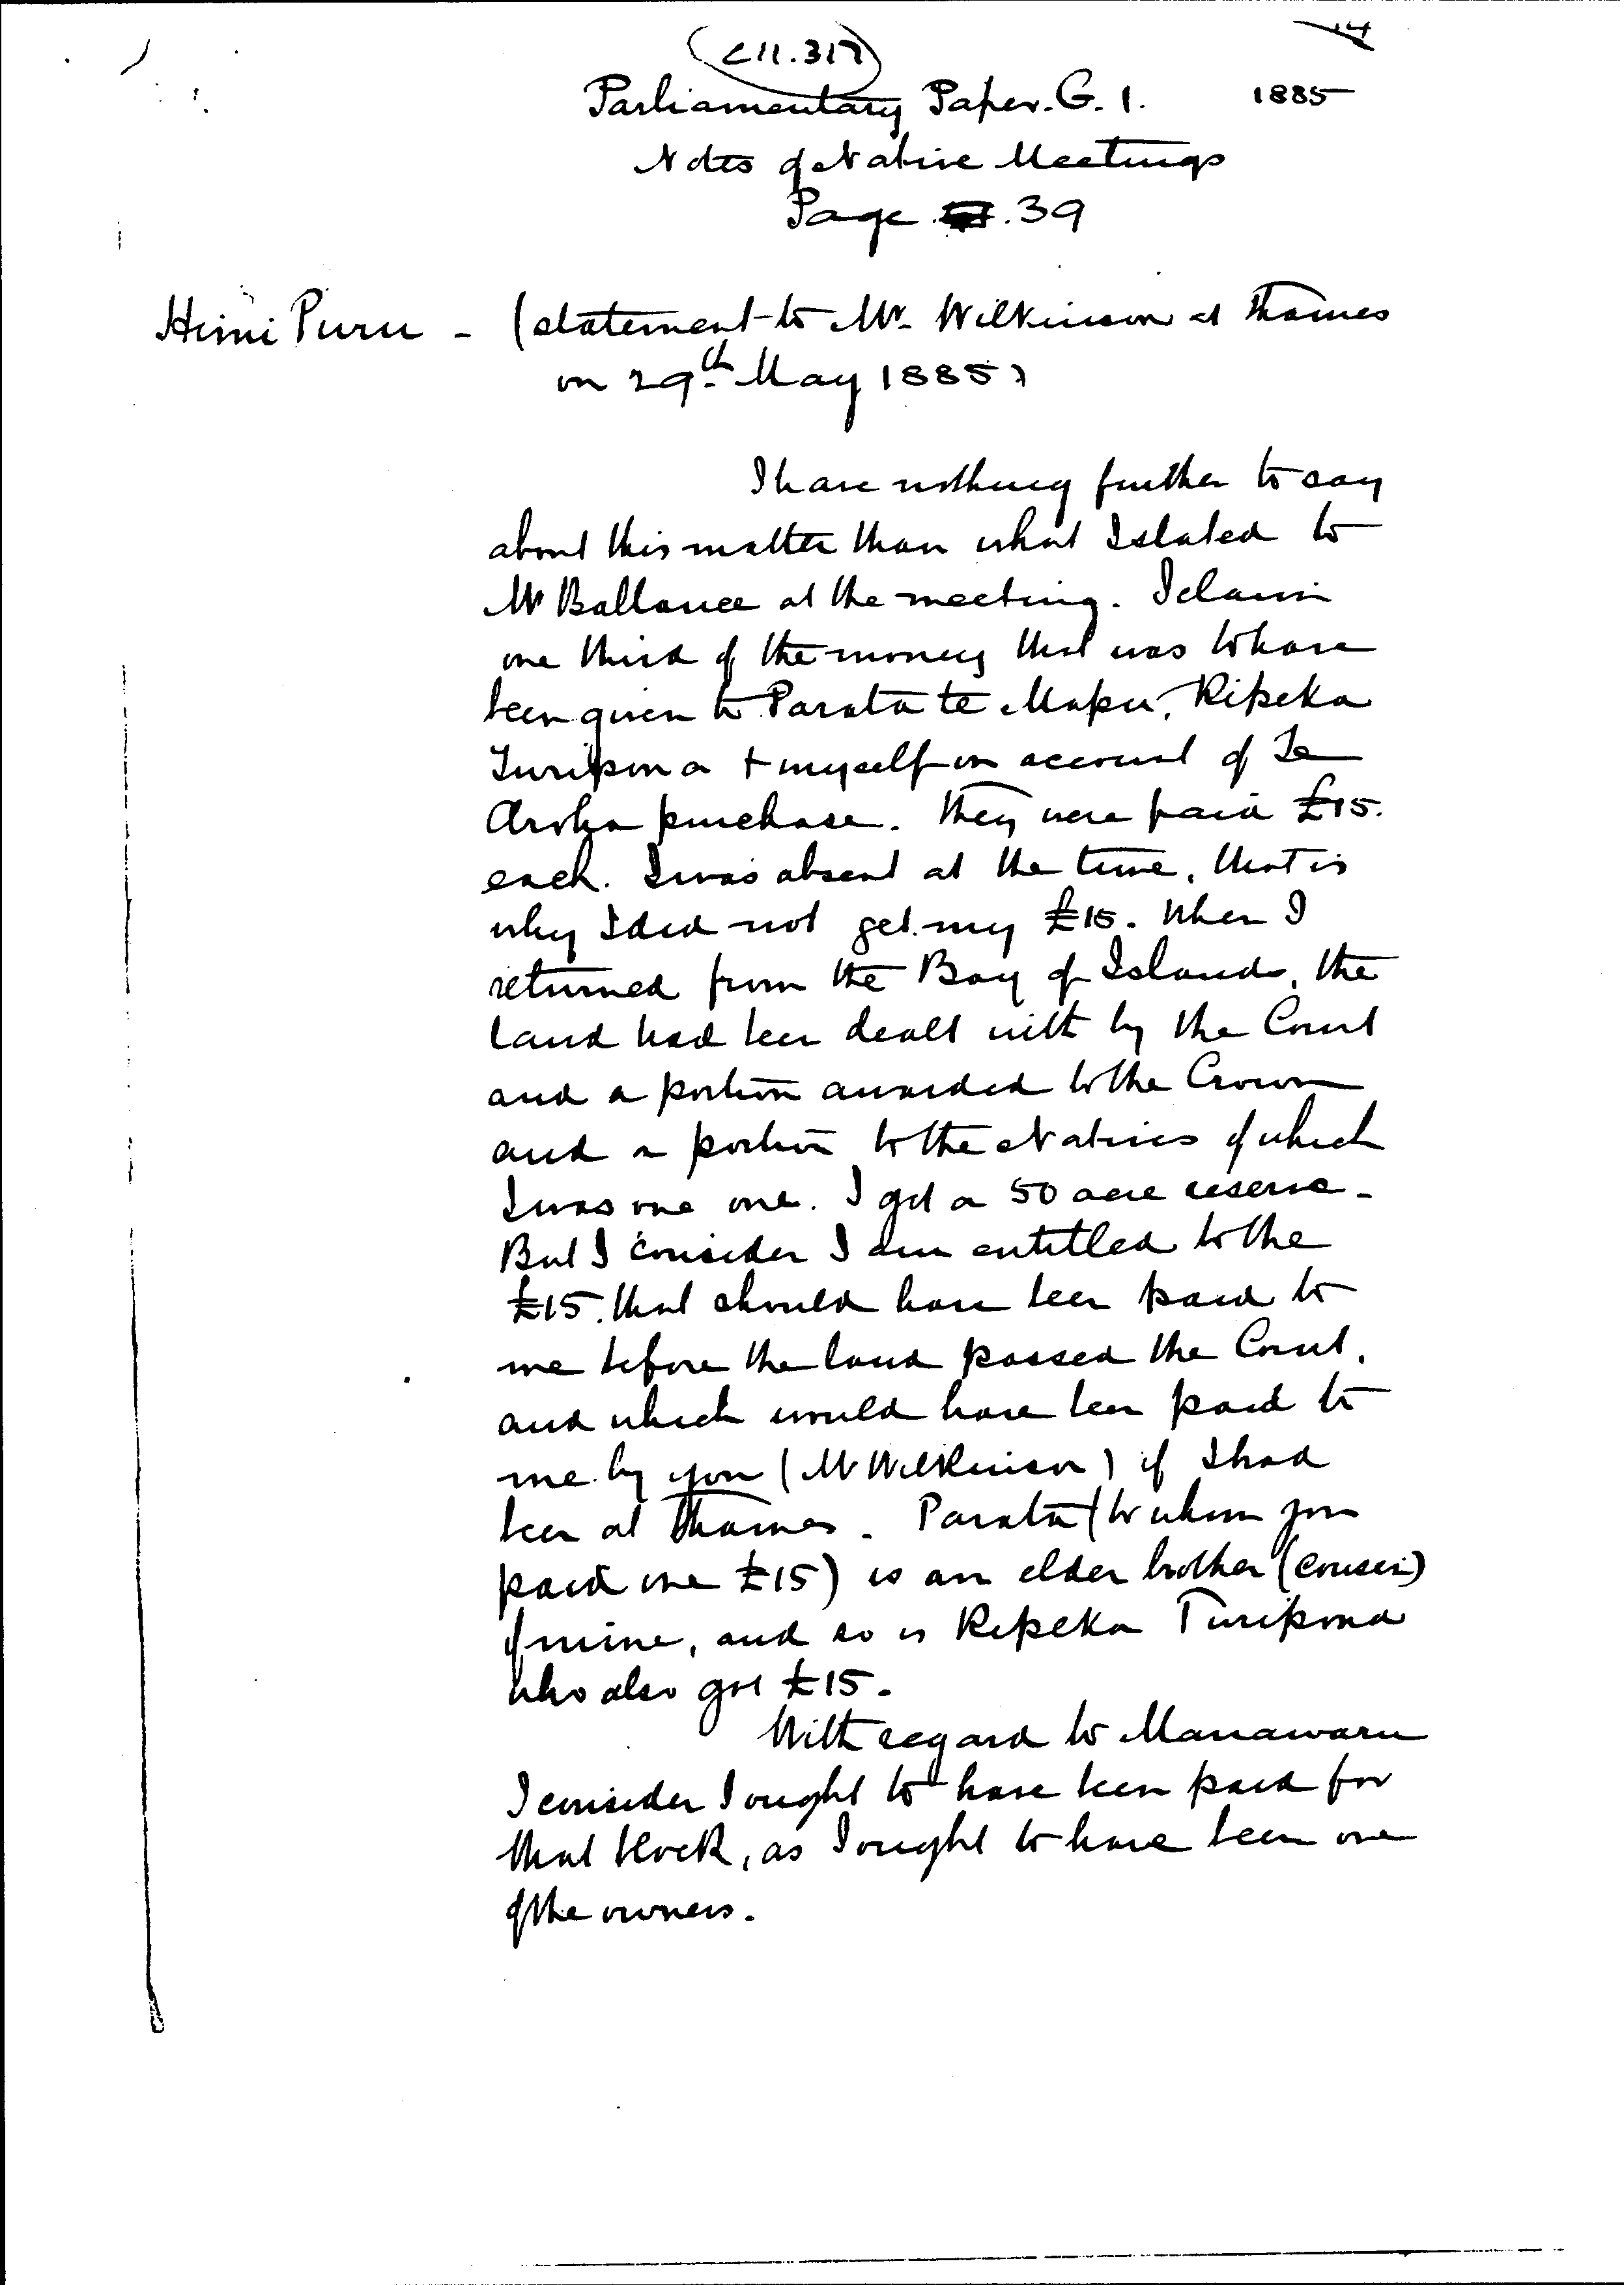 C11.317
14
Parliamentary Paper. G. 1. 1885
Notes of Native Meetings
Page 39
Himi Puru - (statement to Mr. Wilkinson at Thames
on 29th May 1885)
I have nothing further to say
about this matter than what I stated to
Mr Ballance at the meeting. I claim
one third of the money that was to have
been given to Parata te Mapu, Ripeka
Turipona + myself on account of Te
Aroha purchase. They were paid £15.
each. I was absent at the time, that is
why I did not get my £15. When I
returned from the Bay of Islands, the
land had been dealt with by the Court
and a portion awarded to the Crown
and a portion to the Natives of which
I was one one. I got a 50 acre reserve.
But I consider I am entitled to the
£15. that should have been paid to
me before the land passed the Court,
and which would have been paid to
me by you (Mr Wilkinson) if I had
been at Thames. Parata (to whom you
paid one £15) is an elder brother (cousin)
of mine, and so is Ripeka Turipona
who also got £15.
With regard to Manawaru
I consider I ought to have been paid for
that block, as I ought to have been one
of the owners.